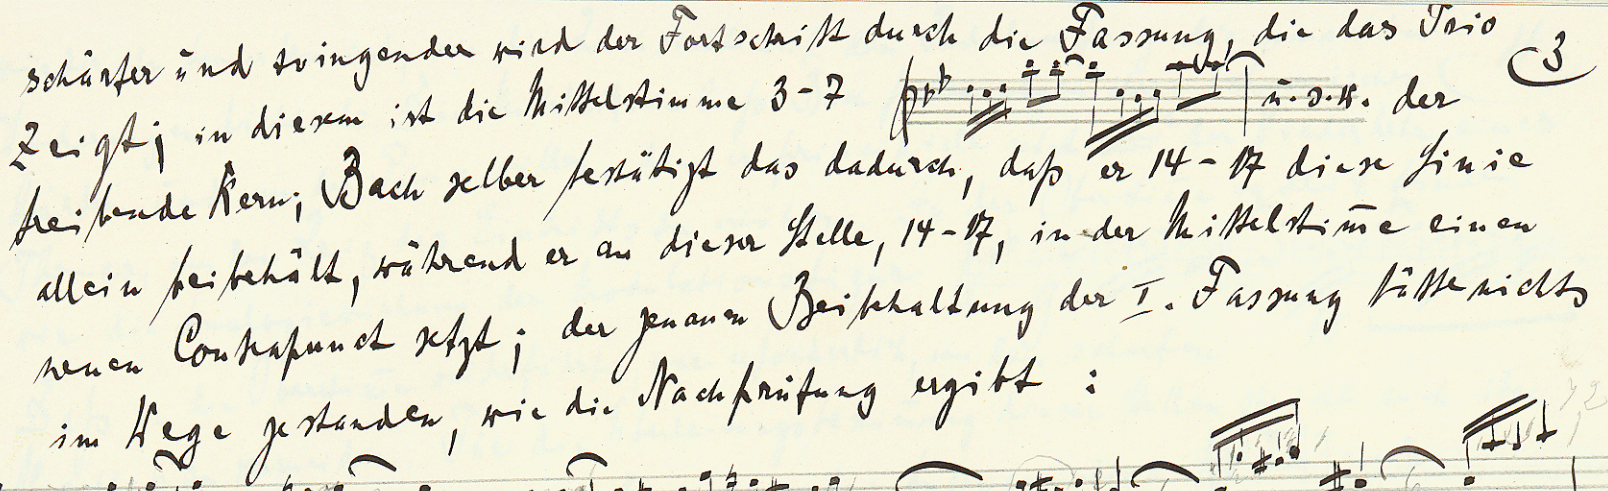 schärfer und zwingender wird der Fortschritt durch die Fassung, die das Trio
3
zeigt; in diesem ist die Mittelstimme 3-7 u.s.w. der
treibende Kern; Bach selber bestätigt das dadurch, daß er 14-17 diese Linie
allein beibehält, während er an dieser Stelle, 14-17, in der Mittelstim̅e einen
neuen Contrapunct setzt; der genauen Beibehaltung der I. Fassung hätte nichts
im Wege gestanden, wie die Nachprüfung ergibt :